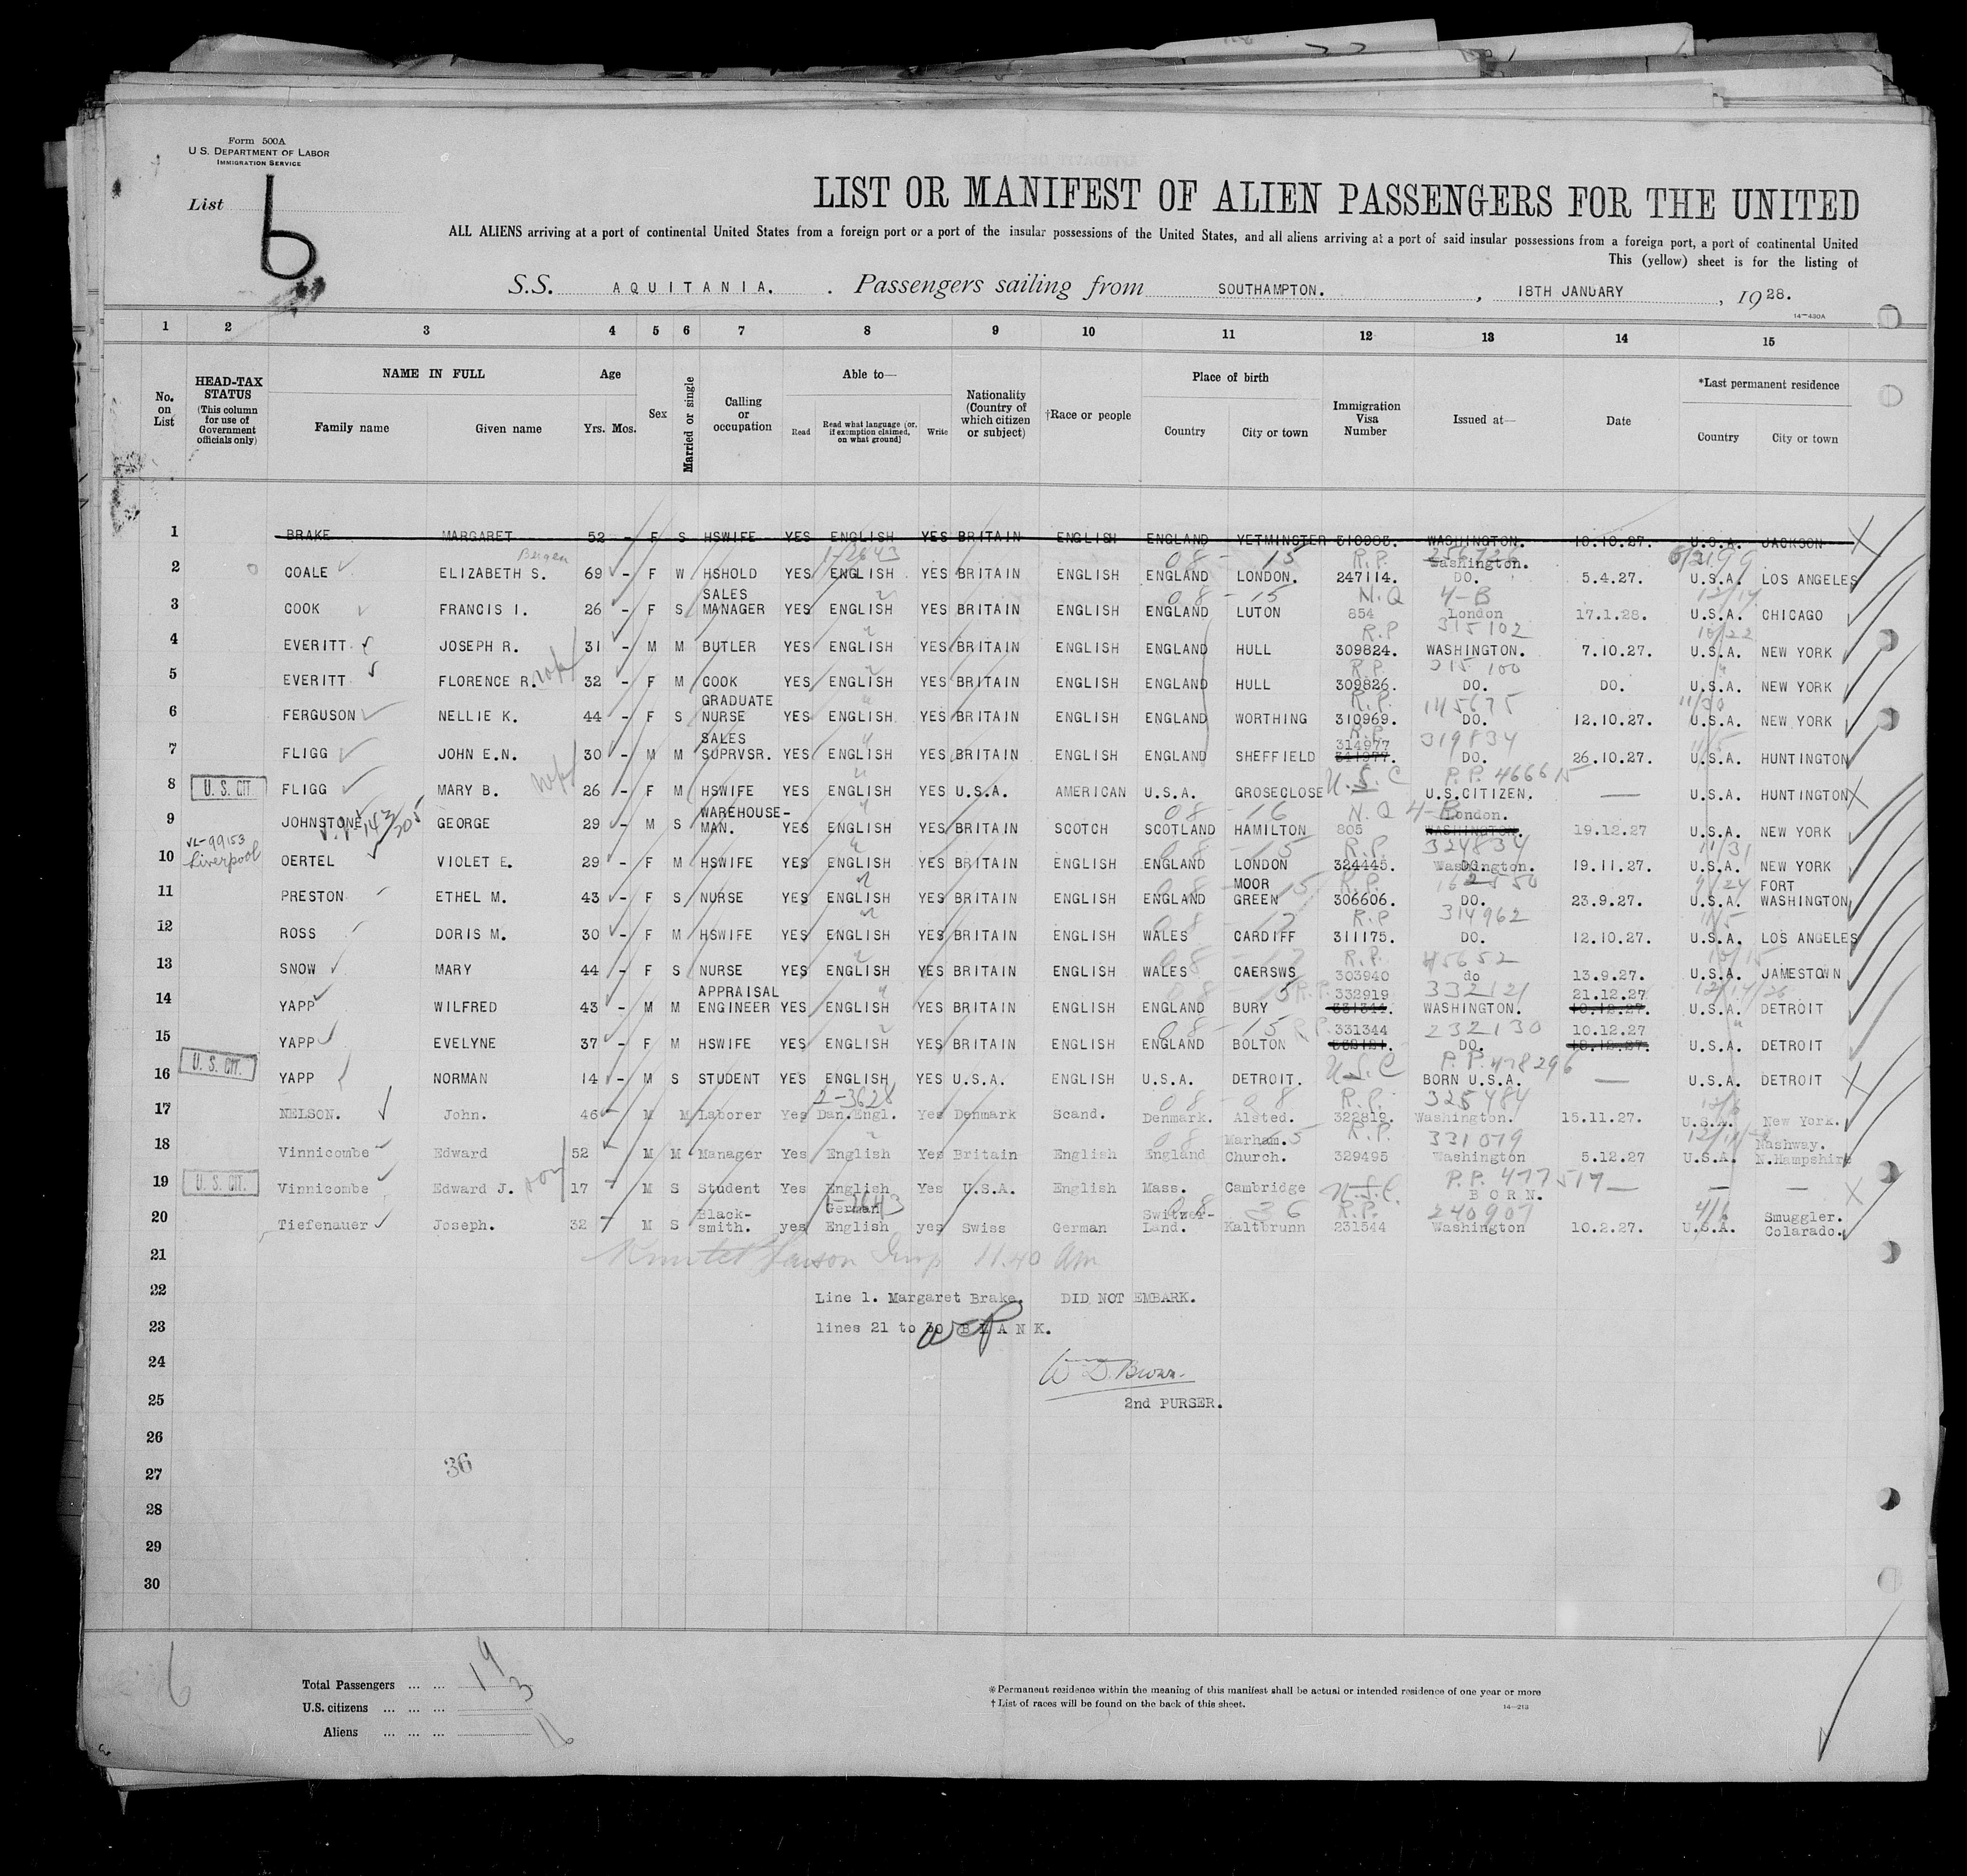 Form 500A
U S. DEPARTMENT OF LABOR
IMMIGRATION SERVICE
List 6
LIST OR MANIFEST OF ALIEN PASSENGERS FOR THE UNITED
ALL ALIENS arriving at a port of continental United States from a foreign port or a port of the insular possessions of the United States, and all aliens arriving at a port of said insular possessions from a foreign port, a port of continental United
This (yellow) sheet is for the listing of
S.S. AQUITANIA. Passengers sailing from SOUTHAMPTON. , 18TH JANUARY , 1928.
14—430A
1 2 3 4 5 6 7 8 9 10 11 12 13 14 15
No. on List
HEAD-TAX STATUS (This column for use of Government officials only)
NAME IN FULL
Family name Given name
Age
Yrs. Mos.
Sex
Married or single
Calling or occupation
Able to—
Read Read what language [or, if exemption claimed, on what ground] Write
Nationality (Country of which citizen or subject)
†Race or people
Place of birth
Country City or town
Immigration Visa Number
Issued at—
Date
*Last permanent residence
Country City or town
1 BRAKE MARGARET 52 - F S HSWIFE YES ENGLISH YES BRITAIN ENGLISH ENGLAND YETMINSTER 310985. WASHINGTON. 10.10.27. U.S.A. JACKSON
1-2643 08 - 15 R.P. 256726
2 COALE ELIZABETH S. 69 - F W HSHOLD YES ENGLISH YES BRITAIN ENGLISH ENGLAND LONDON. 247114. Washington. DO. 5.4.27. U.S.A. LOS ANGELES
08 - 15 N.Q 4-B 12/14
3 COOK FRANCIS I. 26 - F S SALES MANAGER YES ENGLISH YES BRITAIN ENGLISH ENGLAND LUTON 854 London 17.1.28. U.S.A. CHICAGO
R.P 315102 10/22
4 EVERITT JOSEPH R. 31 - M M BUTLER YES ENGLISH YES BRITAIN ENGLISH ENGLAND HULL 309824. WASHINGTON. 7.10.27. U.S.A. NEW YORK
R.P. 315100
5 EVERITT FLORENCE R. 32 - F M COOK YES ENGLISH YES BRITAIN ENGLISH ENGLAND HULL 309826. DO. DO. U.S.A. NEW YORK
R.P. 145675 11/30
6 FERGUSON NELLIE K. 44 - F S GRADUATE NURSE YES ENGLISH YES BRITAIN ENGLISH ENGLAND WORTHING 310969. DO. 12.10.27. U.S.A. NEW YORK
R.P. 319834
7 FLIGG JOHN E.N. 30 - M M SALES SUPRVSR. YES ENGLISH YES BRITAIN ENGLISH ENGLAND SHEFFIELD 314977 DO. 26.10.27. U.S.A. HUNTINGTON
U.S.C P.P. 466615
8 U. S. CIT. FLIGG MARY B. 26 - F M HSWIFE YES ENGLISH YES U.S.A. AMERICAN U.S.A. GROSECLOSE U.S.CITIZEN. — U.S.A. HUNTINGTON
08 - 16 N.Q 4-B
9 JOHNSTONE GEORGE 29 - M S WAREHOUSE-MAN. YES ENGLISH YES BRITAIN SCOTCH SCOTLAND HAMILTON 805 London. WASHINGTON. 19.12.27 U.S.A. NEW YORK
VL-99153 08 - 15 R.P. 324834 11/31
10 Liverpool OERTEL VIOLET E. 29 - F M HSWIFE YES ENGLISH YES BRITAIN ENGLISH ENGLAND LONDON 324445. Washington. DO. 19.11.27. U.S.A. NEW YORK
08 - 15 R.P. 162550 9/24
11 PRESTON ETHEL M. 43 - F S NURSE YES ENGLISH YES BRITAIN ENGLISH ENGLAND MOOR GREEN 306606. DO. 23.9.27. U.S.A. FORT WASHINGTON
08 - 17 R.P 314962 11/5
12 ROSS DORIS M. 30 - F M HSWIFE YES ENGLISH YES BRITAIN ENGLISH WALES CARDIFF 311175. DO. 12.10.27. U.S.A. LOS ANGELES
08 - 17 R.P. 45652 10/15
13 SNOW MARY 44 - F S NURSE YES ENGLISH YES BRITAIN ENGLISH WALES CAERSWS 303940 do 13.9.27. U.S.A. JAMESTOWN
08 - 15 R.P. 332121 12/14/26
14 YAPP WILFRED 43 - M M APPRAISAL ENGINEER YES ENGLISH YES BRITAIN ENGLISH ENGLAND BURY 332919 331344. WASHINGTON. 21.12.27 10.12.27. U.S.A. DETROIT
08 - 15 R.P. 232130
15 YAPP EVELYNE 37 - F M HSWIFE YES ENGLISH YES BRITAIN ENGLISH ENGLAND BOLTON 331344 DO. 10.12.27 U.S.A. DETROIT
U.S.C P.P. 478296
16 U. S. CIT. YAPP NORMAN 14 - M S STUDENT YES ENGLISH YES U.S.A. ENGLISH U.S.A. DETROIT. BORN U.S.A. — U.S.A. DETROIT
2-3628 08 - 08 R.P. 325484 12/6
17 NELSON. John. 46 M M Laborer Yes Dan.Engl. Yes Denmark Scand. Denmark. Alsted. 322819. Washington. 15.11.27. U.S.A. New York.
08 15 R.P. 331079
18 Vinnicombe Edward 52 M M Manager Yes English Yes Britain English England Marham. Church. 329495 Washington 5.12.27 U.S.A. Nashway. N.Hampshire
P.P. 477517
19 U. S. CIT. Vinnicombe Edward J. 17 M S Student Yes English Yes U.S.A. English Mass. Cambridge U.S.C. BORN. — — —
1-2643 08 36 R.P. 240907 4/6
20 Tiefenauer Joseph. 32 M S Black-smith. yes German English yes Swiss German Switzer-Land. Kaltbrunn 231544 Washington 10.2.27. U.S.A. Smuggler. Colarado.
21 Insp 11.40 am
22 Line 1. Margaret Brake. DID NOT EMBARK.
23 lines 21 to 30 BLANK.
24 W D. Brown.
25 2nd PURSER.
26
27 36
28
29
30
6
Total Passengers ... ... 19
U.S. citizens ... ... ... 3
Aliens ... ... ... 16
*Permanent residence within the meaning of this manifest shall be actual or intended residence of one year or more
† List of races will be found on the back of this sheet.
14—213